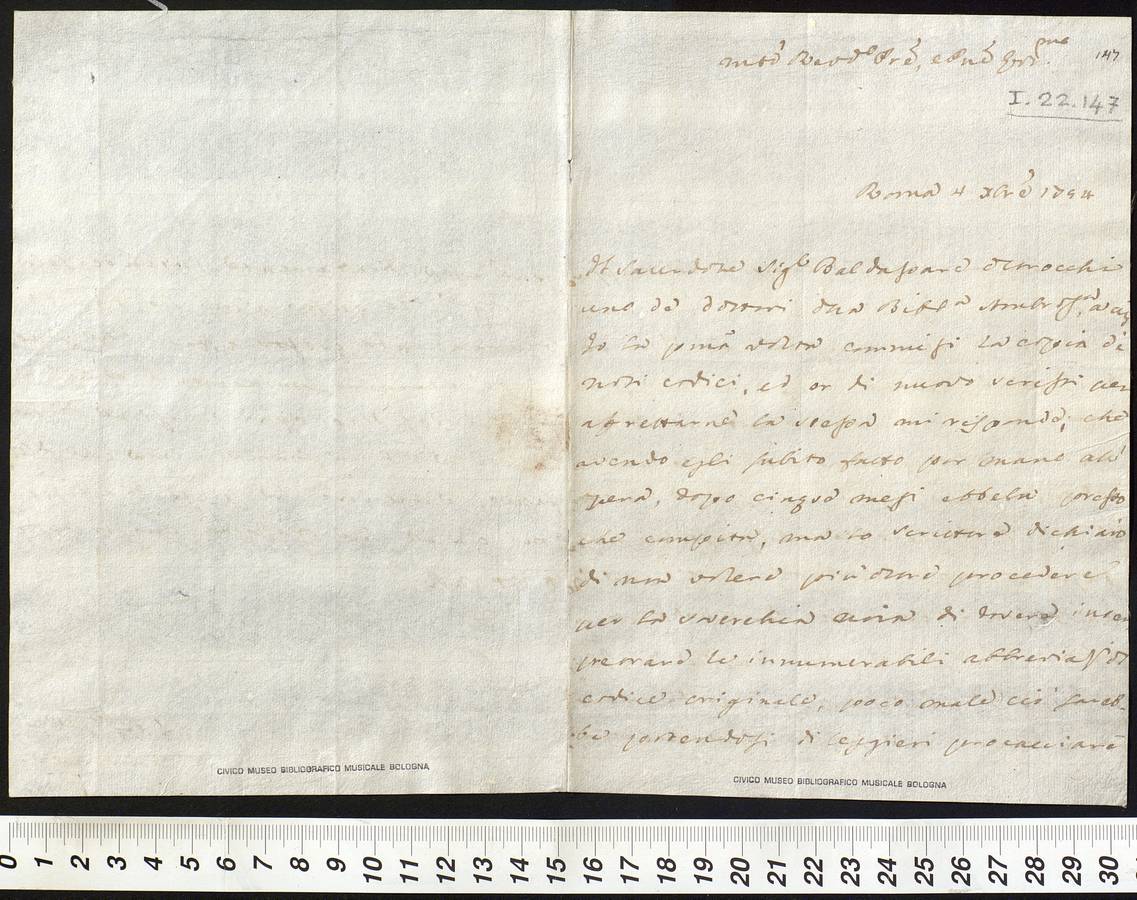 Molto Revdo Pre, e Pne
147
I.22.147
Roma 4 Xbre 1754
Il Sacerdote Sigr Baldassare Oltrocchi
uno de Dottori della Bibla Ambrosna, a cui
Io la prima volta commisi la copia di
noti codici, ed or di nuovo scrissi per
affrettarne la stessa mi risponde, che
avendo egli subito fatto por mano all'
opera, dopo cinque mesi ebbela presso
che compita, ma lo scrittore dichiarò
di non volere più oltre procedere
per la soverchia noia di dovere inter
pretrare le innumerabili abbreviaz
codice originale, poco male ciò sareb-
be potendosi di leggieri procacciare
CIVICO MUSEO BIBLIOGRAFICO MUSICALE BOLOGNA
CIVICO MUSEO BIBLIOGRAFICO MUSICALE BOLOGNA
0 1 2 3 4 5 6 7 8 9 10 11 12 13 14 15 16 17 18 19 20 21 22 23 24 25 26 27 28 29 30